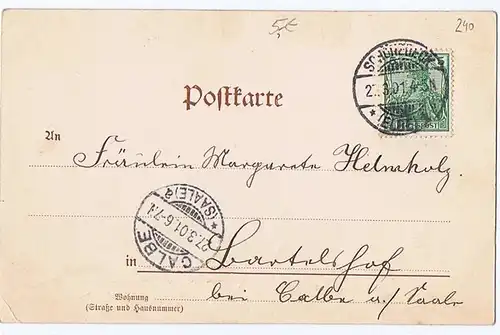 5,€
240
Postkarte
SCHÖNEBECK
27.3.01.4-5N
* (ELBE)
An
Fräulein Margarete Helmholz.
CALBE
27.3.01.6-7N.
*(SAALE)
in Bartelshof
bei Calbe a./Saale
Wohnung
(Straße und Hausnummer)